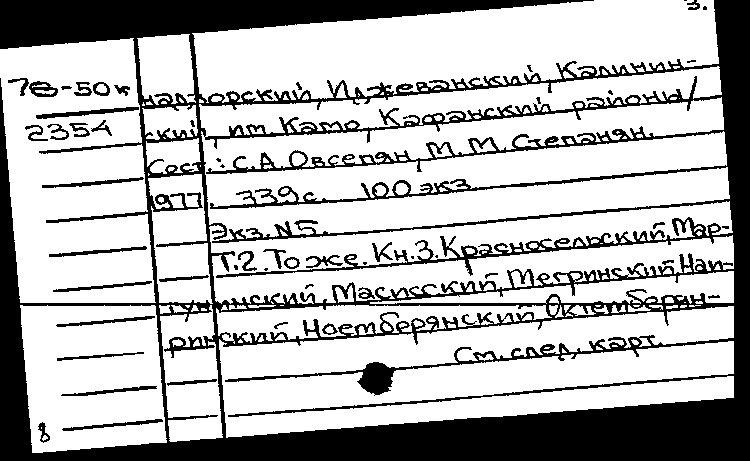 3.
78-50к
2354
надзорский, Иджеванский, Калинин-
ский, им. Камо, Кафанский районы/
Сост.: С.А. Овсепян, М.М. Степанян.
1977. 339с. 100 экз
Экз. N5.
Т.2. То же. Кн.3. Красносельский, Мар-
тунинский, Масисский, Мегринский, Наи-
ринский, Ноемберянский, Октемберян-
См. след. карт.
8